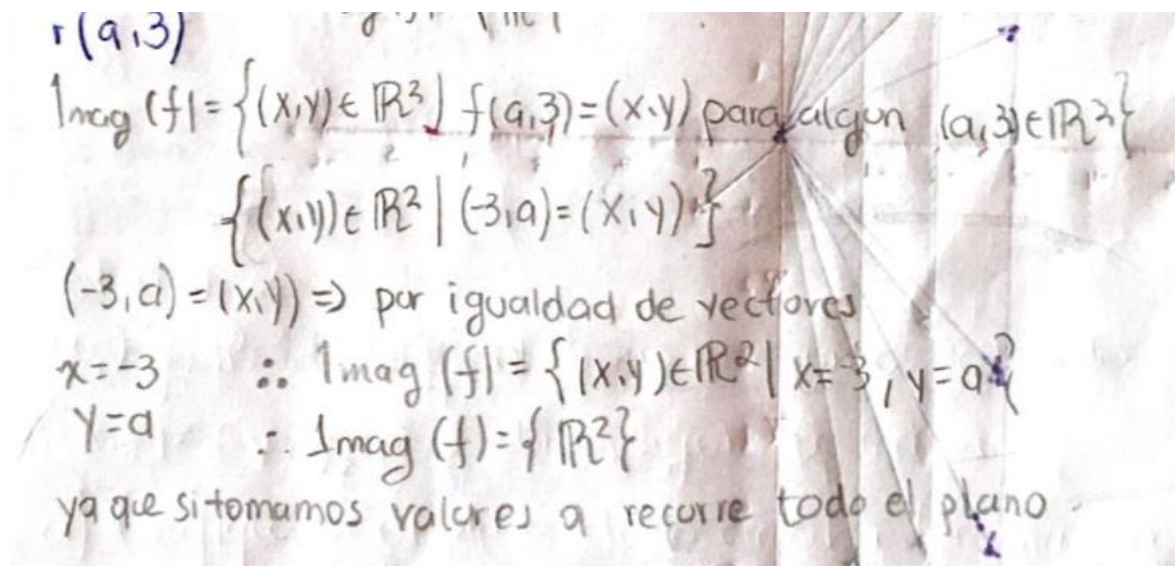 r(a,3)
Imag (f) = {(x,y) ∈ ℝ³ | f(a,3) = (x,y) para algun (a,3) ∈ ℝ²}
{(x,y) ∈ ℝ² | (-3,a) = (x,y)}
(-3,a) = (x,y) ⇒ por igualdad de vectores
x=-3 ∴ Imag (f) = {(x,y) ∈ ℝ² | x=-3, y=a}
y=a ∴ Imag (f) = {ℝ²}
ya que si tomamos valores a recorre todo el plano.